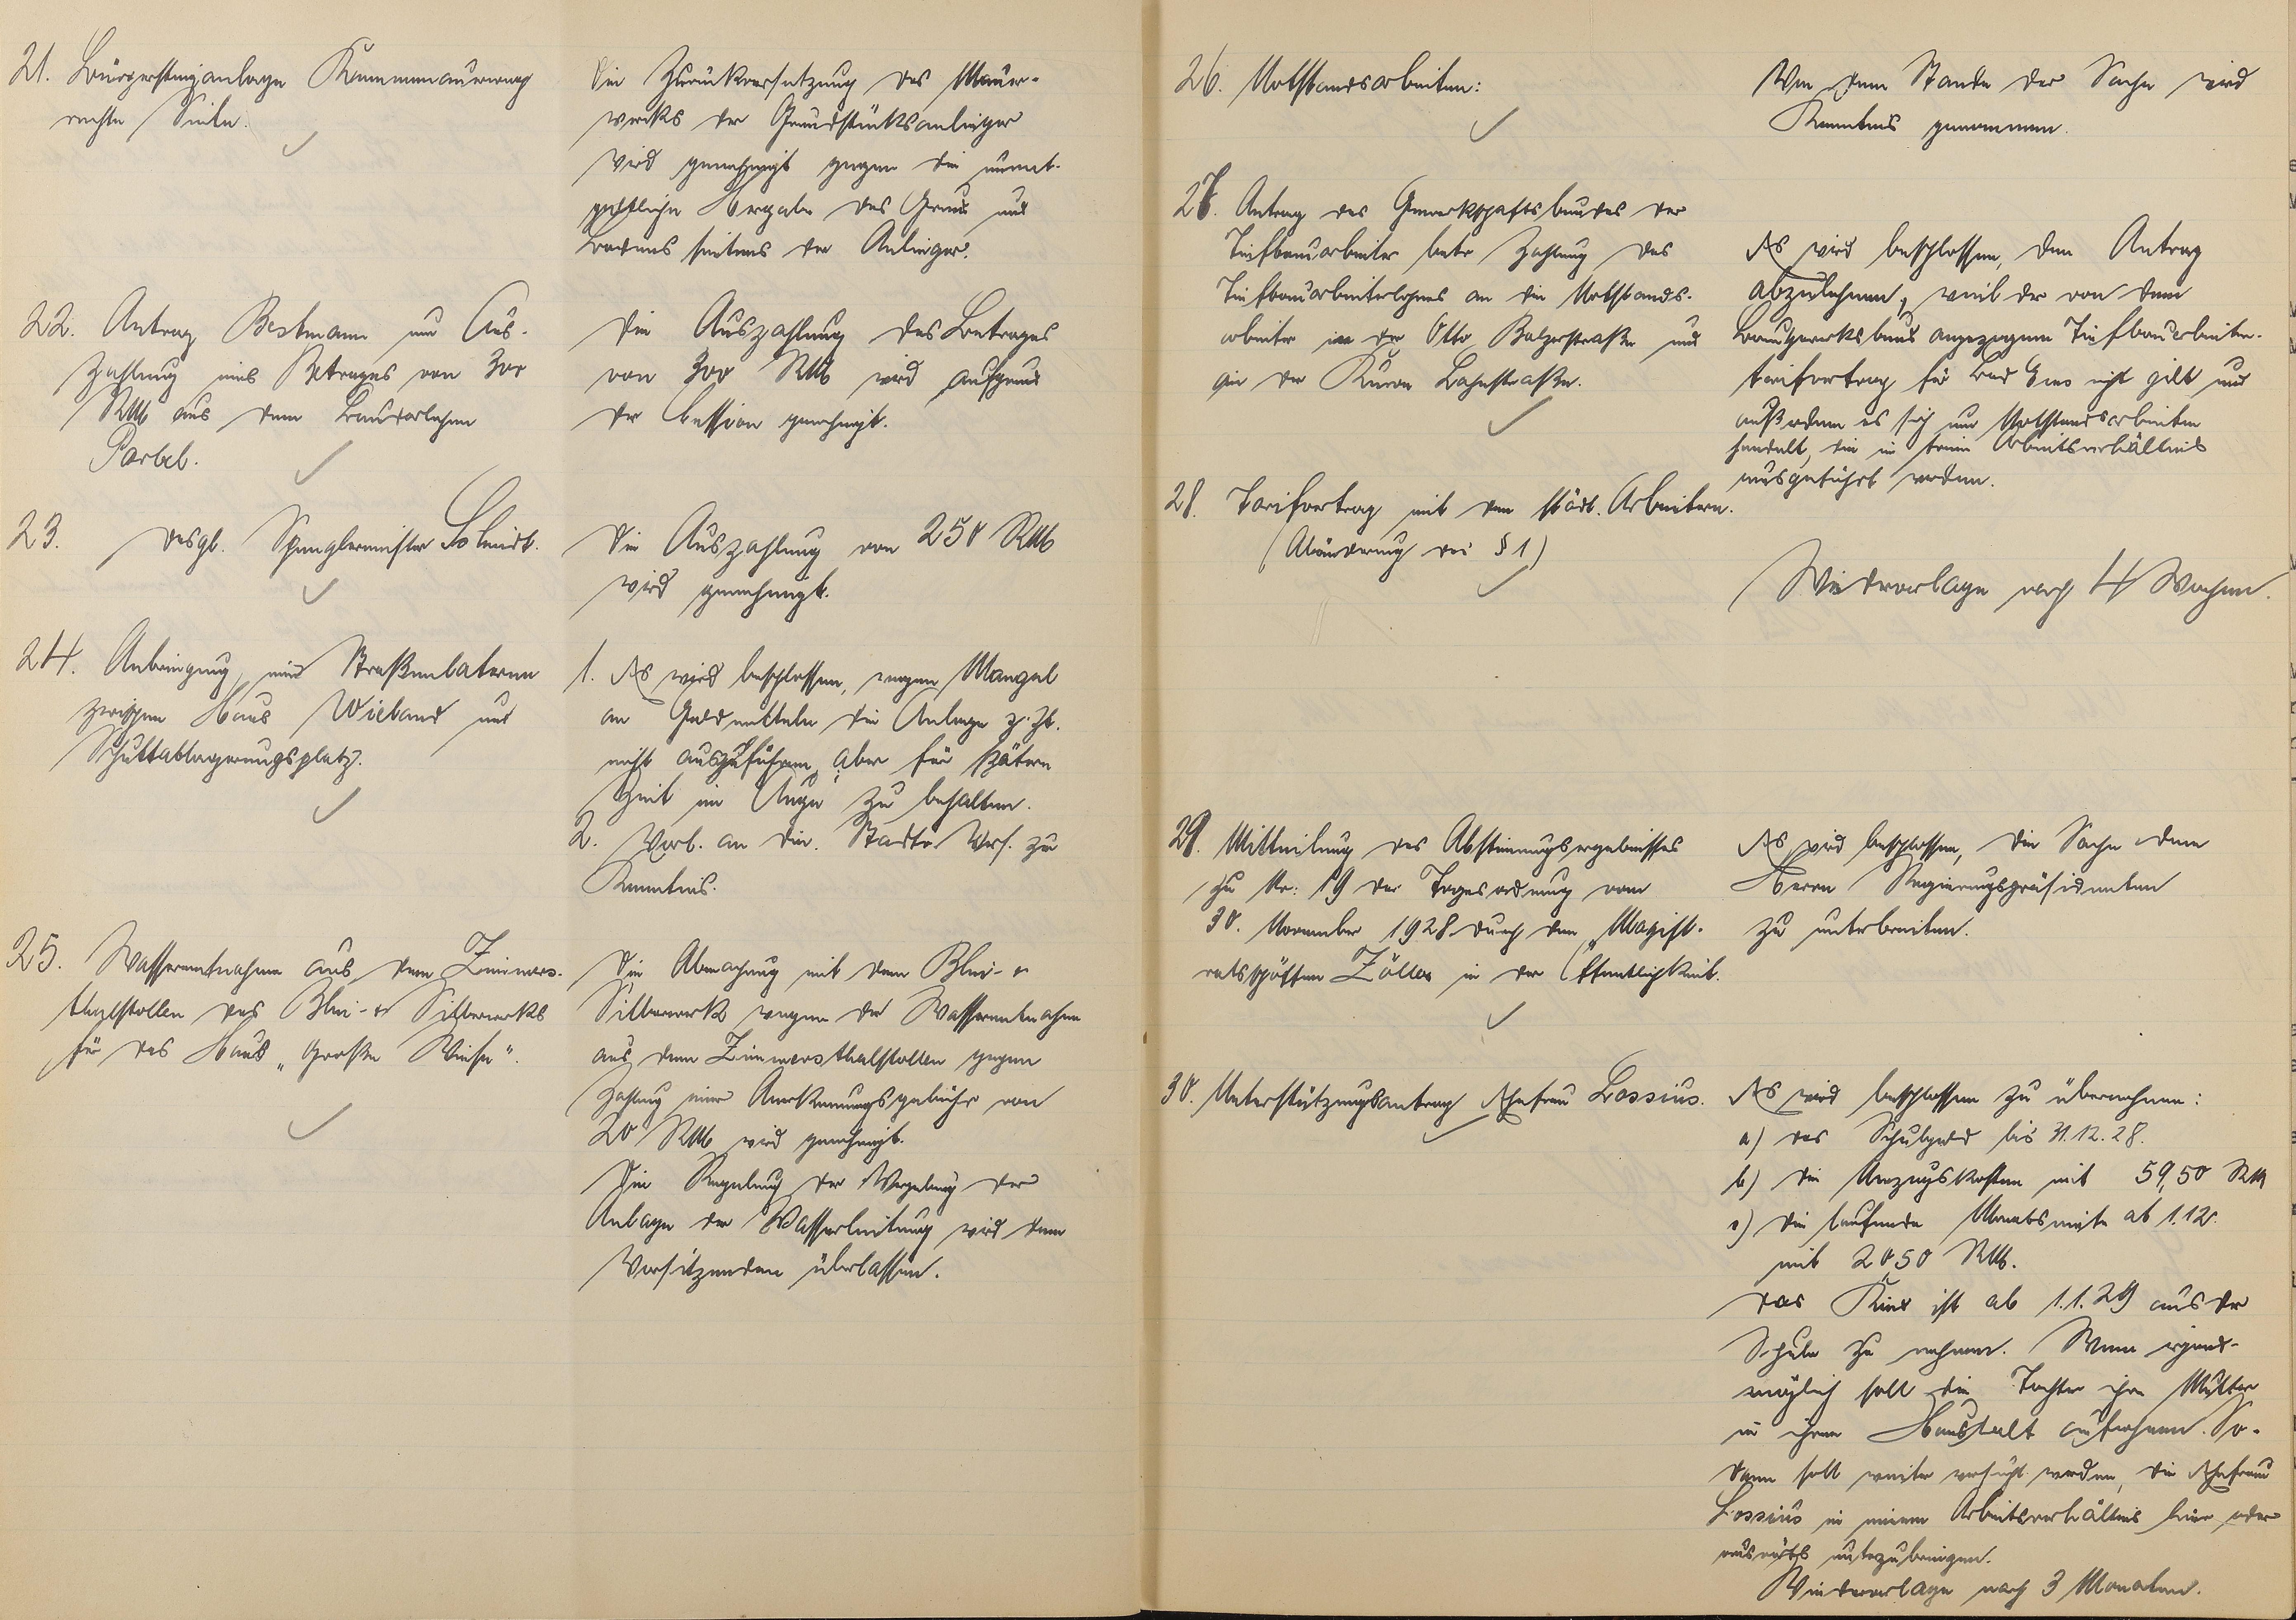 21. Bürgersteiganlage Kemmenauerweg
rechte Seite.
Die Zurückversetzung des Mauer-
werks der Grundstücksanlieger
wird genehmigt gegen die unent-
geltliche Hergabe des Grund und
Bodens seitens der Anlieger.
22. Antrag Bestmann um Aus-
zahlung eines Betrages von 300
RM aus dem Baudarlehen
Die Auszahlung des Betrages
von 300 RM wird aufgrund
der Cession genehmigt.
23. desgl. Spenglermeister Schmidt.
Die Auszahlung von 250 RM
wird genehmigt.
24. Anbringung einer Straßenlaterne
zwischen Haus Wieland und
Schuttablagerungsplatz.
1. Es wird beschlossen, wegen Mangel
an Geldmitteln die Anlage z. Zt.
nicht auszuführen, aber für spätere
Zeit im Auge zu behalten.
2. Vorl. an die Stadtv. Vers. zu
Kenntnis.
25. Wasserentnahme aus dem Zimmers-
thalstollen des Blei- u Silberwerks
für das Haus "Große Wiese".
Die Abmachung mit dem Blei- u
Silberwerk wegen der Wasserentnahme
aus dem Zimmersthalstollen gegen
Zahlung einer Anerkennungsgebühr von
20 RM wird genehmigt.
Die Regelung der Vergebung der
Anlage der Wasserleitung wird dem
Vorsitzenden überlassen.
26. Notstandsarbeiten:
Von dem Stande der Sache wird
Kenntnis genommen.
27. Antrag des Gewerkschaftsbundes der
Tiefbauarbeiter betr Zahlung des
Tiefbauarbeiterlohnes an die Notstands-
arbeiter in der Otto Balzerstraße und
an der Kuron Lahnstraße.
Es wird beschlossen, den Antrag
abzulehnen, weil der von dem
angezogene Tiefbauarbeiter-
tarifvertrag für Bad Ems nicht gilt und
außerdem es sich um Notstandsarbeiten
handelt, die in keinem Arbeitsverhältnis
ausgeführt werden.
28. Tarifvertrag mit den städt. Arbeitern.
(Abänderung des § 1)
Wiedervorlage nach 4 Wochen.
29. Mitteilung des Abstimmungsergebnisses
zu Nr: 19 der Tagesordnung vom
30. November 1928 durch den Magist-
ratsschöffen Zöller in der Öffentlichkeit.
Es wird beschlossen, die Sache dem
Herrn Regierungspräsidenten
zu unterbreiten.
30. Unterstützungsantrag Ehefrau Lossius.
Es wird beschlossen zu übernehmen:
a) das Schulgeld bis 31.12.28.
b) die Umzugskosten mit 59,50 RM
c) die laufende Monatsmiete ab 1.12.
mit 20,50 RM.
Das Kind ist ab 1.1.29 aus der
Schule zu nehmen. Wenn irgend-
möglich soll die Tochter ihre Mutter
in ihren Haushalt aufnehmen. So-
dann soll weiter versucht werden, die Ehefrau
Lossius in einem Arbeitsverhältnis hier oder
auswärts unterzubringen.
Wiedervorlage nach 3 Monaten.